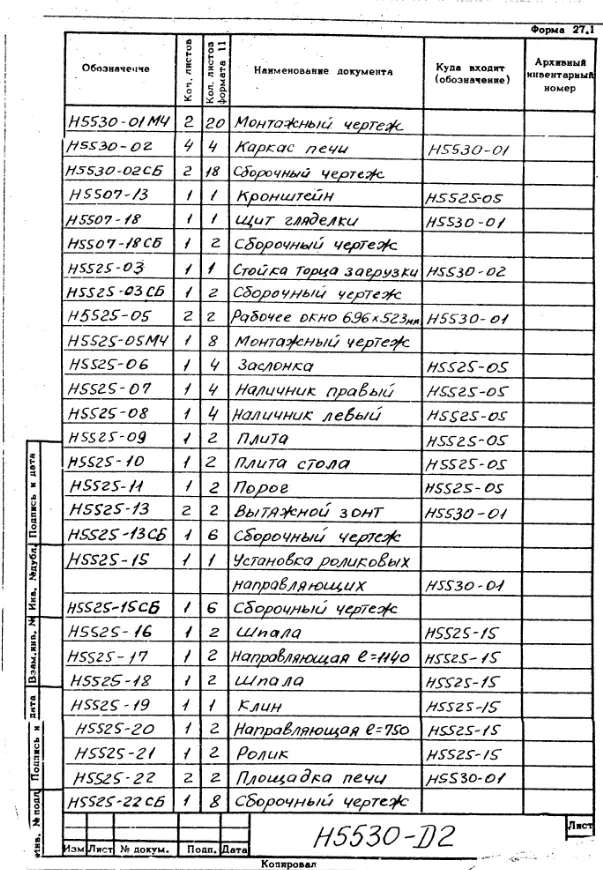 Форма 27.1
Обозначение Кол. листов Кол. листов формата 11 Наименование документа Куда входит (обозначение) Архивный инвентарный номер
Н5530-01МЧ 2 20 Монтажный чертеж
Н5530-02 4 4 Каркас печи Н5530-01
Н5530-02СБ 2 18 Сборочный чертеж
Н5507-13 1 1 Кронштейн Н5525-05
Н5507-18 1 1 Щит гляделки Н5530-01
Н5507-18СБ 1 2 Сборочный чертеж
Н5525-03 1 1 Стойка торца загрузки Н5530-02
Н5525-03СБ 1 2 Сборочный чертеж
Н5525-05 2 2 Рабочее окно 696х523мм Н5530-01
Н5525-05МЧ 1 8 Монтажный чертеж
Н5525-06 1 4 Заслонка Н5525-05
Н5525-07 1 4 Наличник правый Н5525-05
Н5525-08 1 4 Наличник левый Н5525-05
Н5525-09 1 2 Плита Н5525-05
Н5525-10 1 2 Плита стола Н5525-05
Н5525-11 1 2 Порог Н5525-05
Н5525-13 2 2 Вытяжной зонт Н5530-01
Н5525-13СБ 1 6 Сборочный чертеж
Н5525-15 1 1 Установка роликовых
направляющих Н5530-01
Н5525-15СБ 1 6 Сборочный чертеж
Н5525-16 1 2 Шпала Н5525-15
Н5525-17 1 2 Направляющая ℓ=1140 Н5525-15
Н5525-18 1 2 Шпала Н5525-15
Н5525-19 1 1 Клин Н5525-15
Н5525-20 1 2 Направляющая ℓ=750 Н5525-15
Н5525-21 1 2 Ролик Н5525-15
Н5525-22 2 2 Площадка печи Н5530-01
Н5525-22СБ 1 8 Сборочный чертеж
Подпись и дата
Инв. №дубл.
Взам.инв. №
Подпись и дата
Инв. №подл
Н5530-Д2
Лист
Изм Лист № докум. Подп. Дата
Копировал